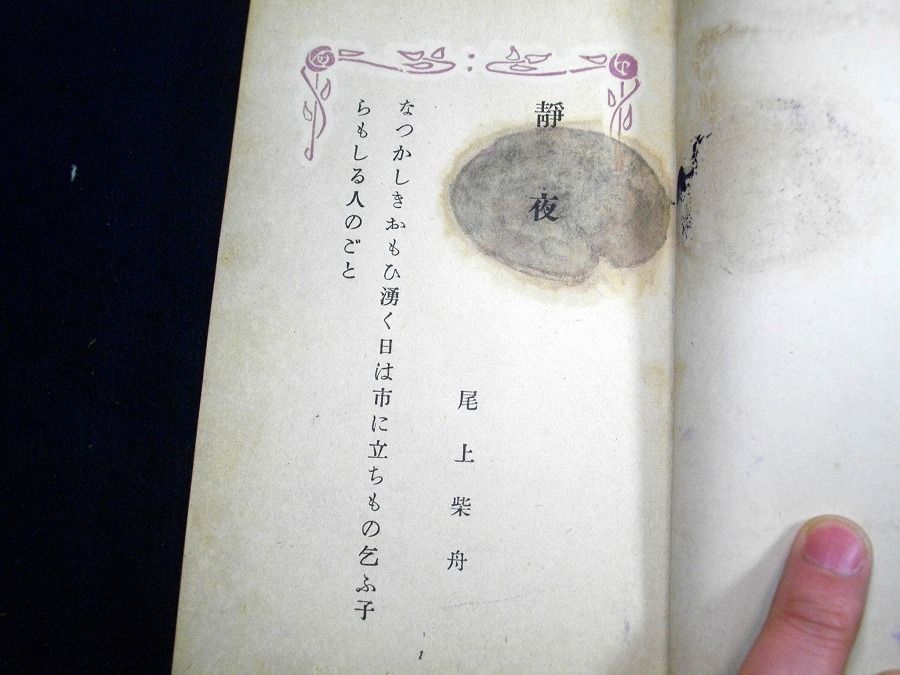 靜夜
尾上柴舟
なつかしきおもひ湧く日は市に立ちもの乞ふ子
らもしる人のごと
1